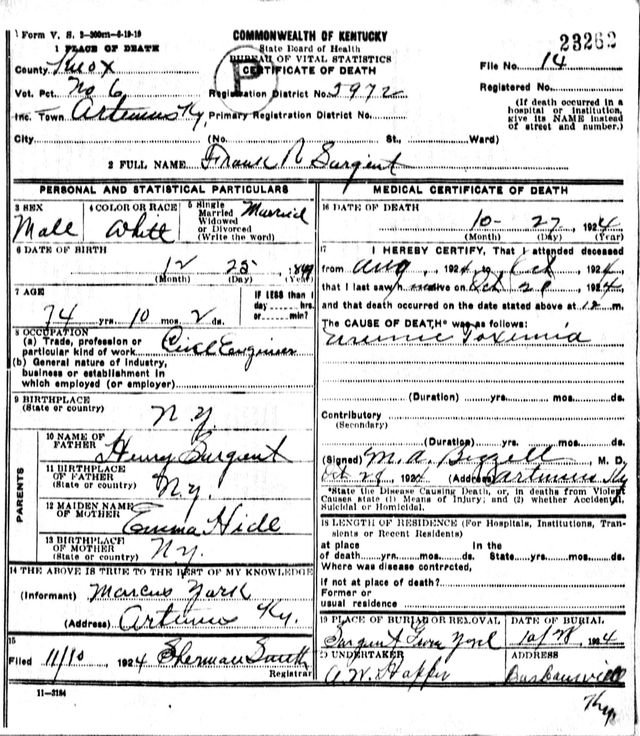 Form V. S. 2-300m-6-19-19
COMMONWEALTH OF KENTUCKY
State Board of Health
BUREAU OF VITAL STATISTICS
CERTIFICATE OF DEATH
P
23262
1 PLACE OF DEATH
County Knox
File No. 14
Vot. Pct. No 6
Registration District No. 5972
Registered No.
Inc. Town Artemus Ky
Primary Registration District No.
(If death occurred in a hospital or institution, give its NAME instead of street and number.)
City (No. St., Ward)
2 FULL NAME Frank R Sargent
PERSONAL AND STATISTICAL PARTICULARS
3 SEX Male
4 COLOR OR RACE White
5 Single Married Widowed or Divorced (Write the word) Married
6 DATE OF BIRTH
12 25 1849
(Month) (Day) (Year)
7 AGE
74 yrs. 10 mos. 2 ds.
IF LESS than 1 day hrs. or min?
8 OCCUPATION
(a) Trade, profession or particular kind of work Civil Engineer
(b) General nature of industry, business or establishment in which employed (or employer)
9 BIRTHPLACE
(State or country) N Y.
PARENTS
10 NAME OF FATHER Henry Sargent
11 BIRTHPLACE OF FATHER
(State or country) N Y.
12 MAIDEN NAME OF MOTHER Emma Hide
13 BIRTHPLACE OF MOTHER
(State or country) N Y.
14 THE ABOVE IS TRUE TO THE BEST OF MY KNOWLEDGE
(Informant) Marcus York
(Address) Artemus Ky.
15
Filed 11/10 1924 Sherman Smith
Registrar
11-3184
MEDICAL CERTIFICATE OF DEATH
16 DATE OF DEATH
10- 27, 1924
(Month) (Day) (Year)
17 I HEREBY CERTIFY, That I attended deceased
from Aug, 1924, to Oct 1924
that I last saw h alive on Oct 1924
and that death occurred on the date stated above at 12 m.
The CAUSE OF DEATH* was as follows:
Uremic Toxemia
(Duration) yrs. mos. ds.
Contributory
(Secondary)
(Duration) yrs. mos. ds.
(Signed) M. A. Bizzell, M. D.
Oct 29, 1924 (Address) Artemus Ky
*State the Disease Causing Death, or, in deaths from Violent Causes state (1) Means of Injury; and (2) whether Accidental, Suicidal or Homicidal.
18 LENGTH OF RESIDENCE (For Hospitals, Institutions, Transients or Recent Residents)
at place of death yrs. mos. ds. In the State yrs. mos. ds.
Where was disease contrrcted,
If not at place of death?
Former or usual residence
19 PLACE OF BURIAL OR REMOVAL
Sargent York
DATE OF BURIAL
10/28 1924
20 UNDERTAKER
ADDRESS
Barbourville
Ky